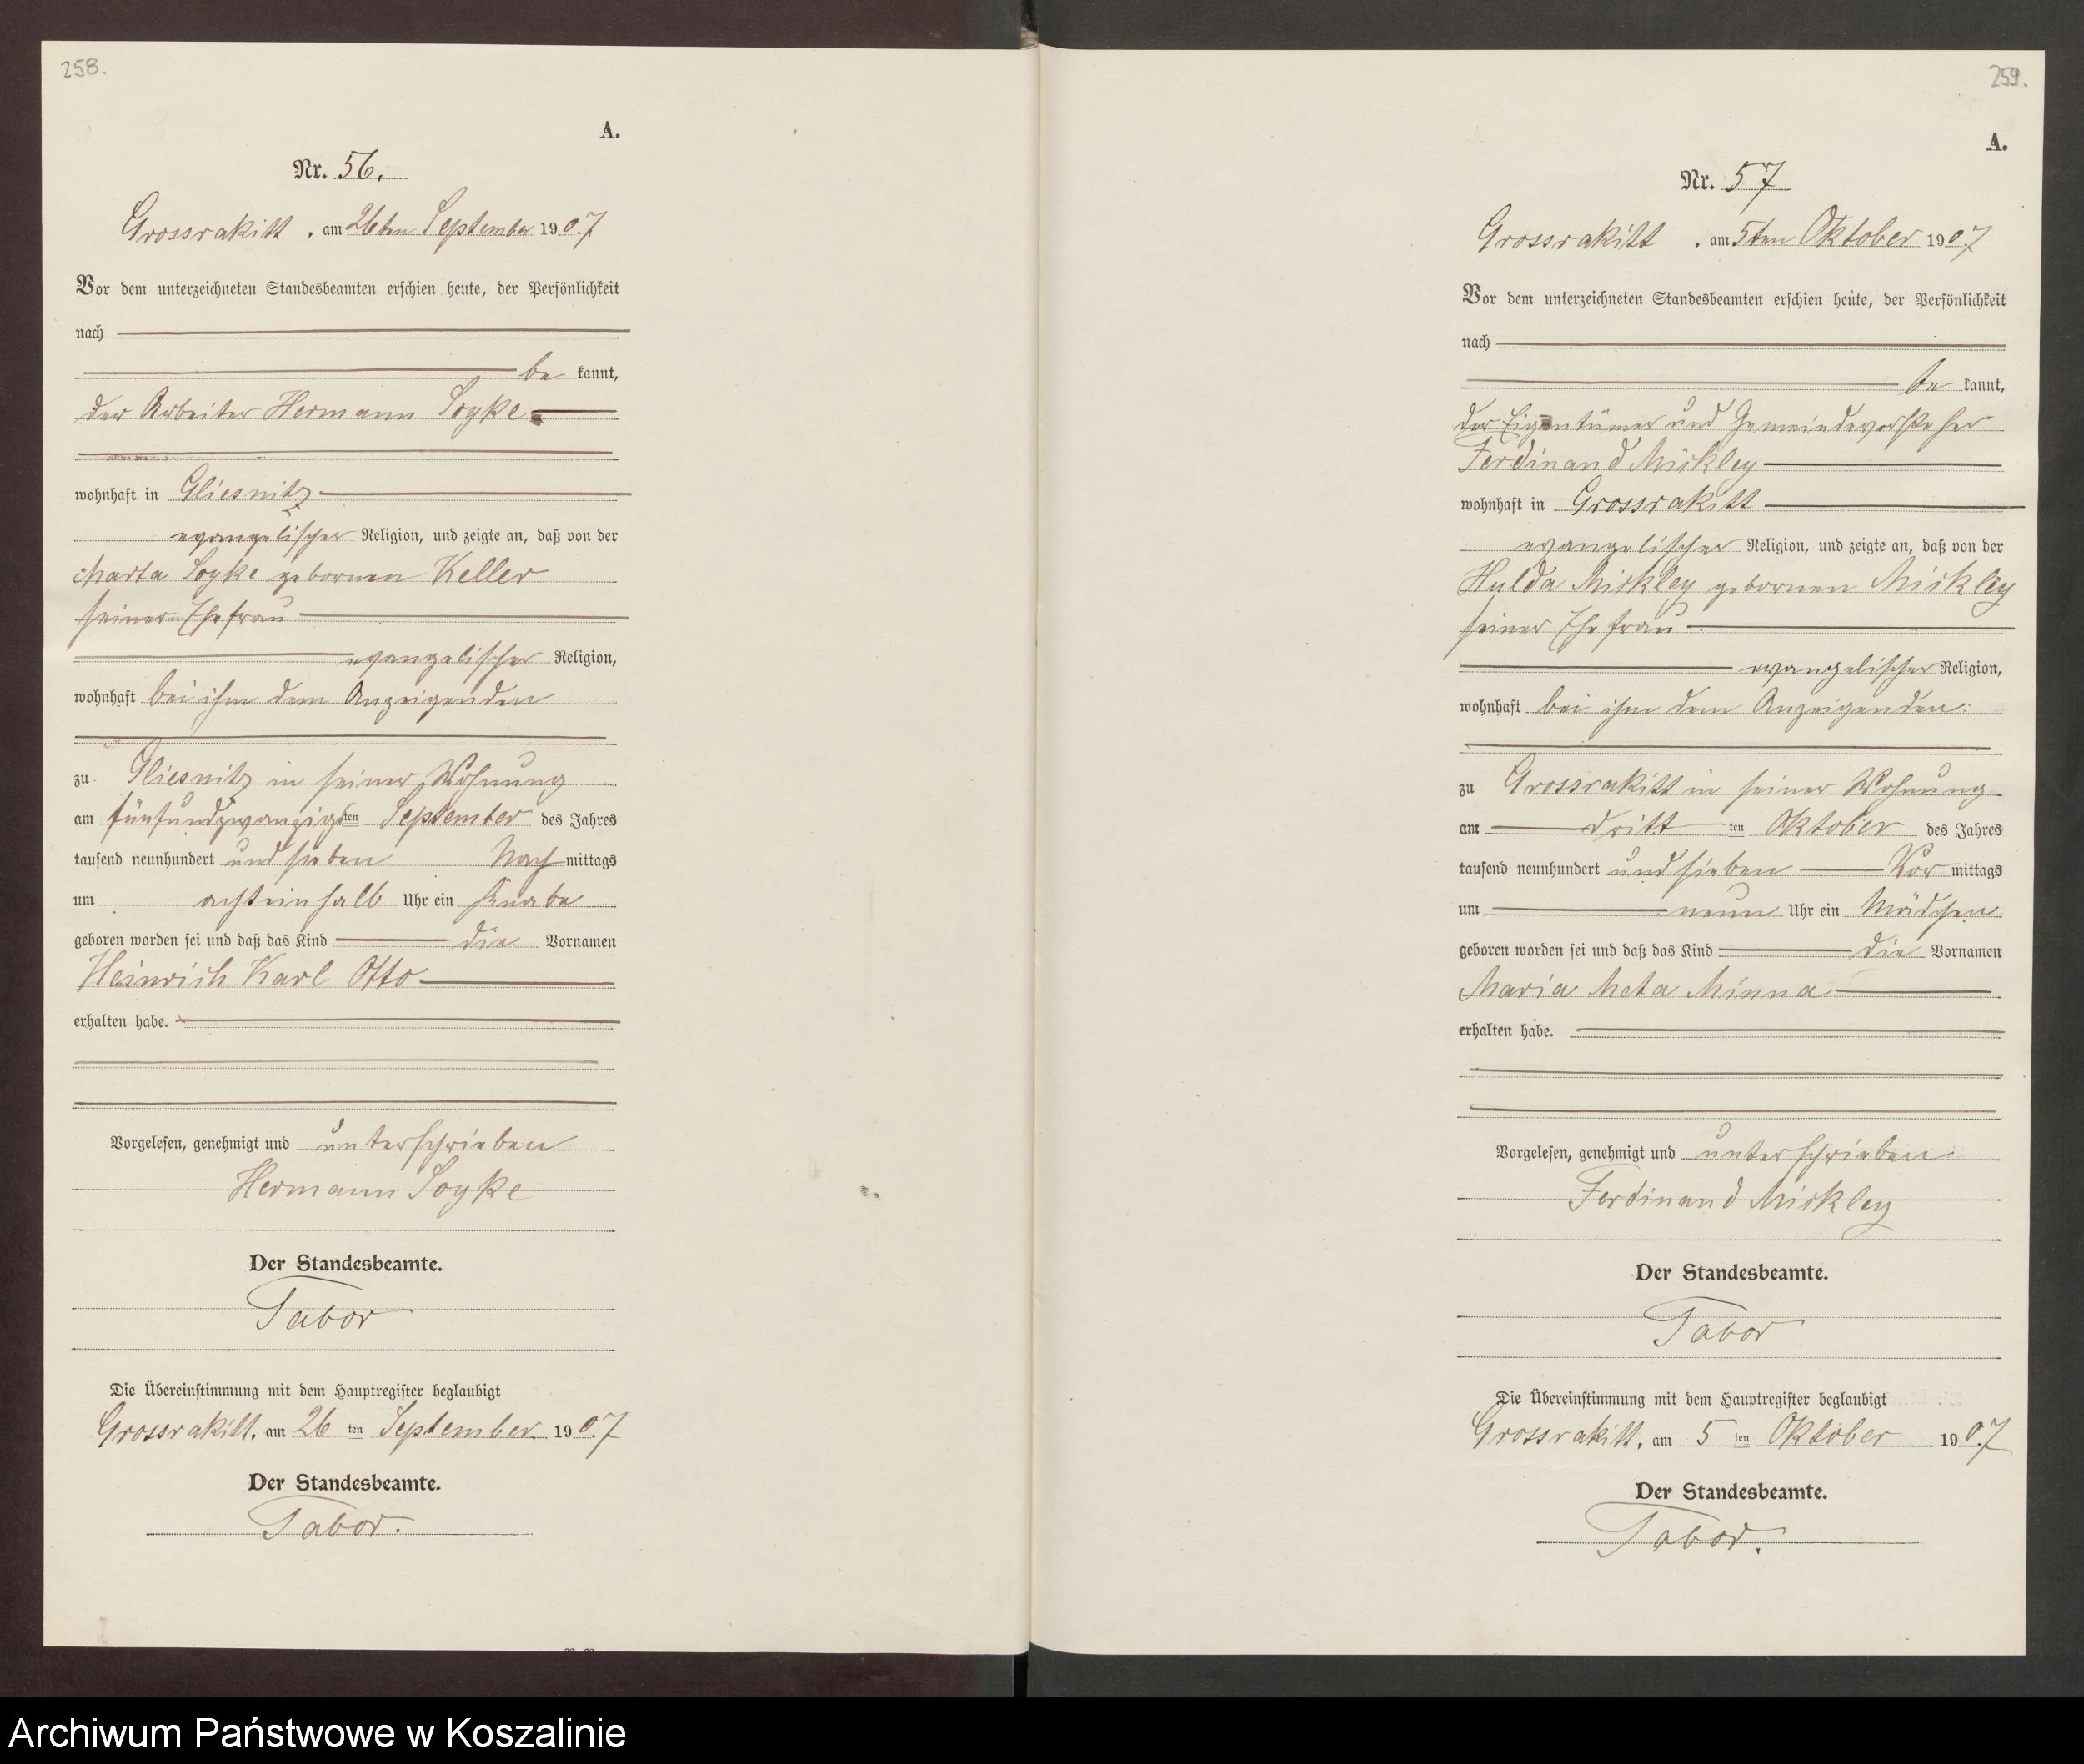 258.
A.
Nr. 56.
Grossrakitt, am 26ten September 1907
Vor dem unterzeichneten Standesbeamten erschien heute, der Persönlichkeit
nach
be kannt,
der Arbeiter Hermann Soyke
wohnhaft in Gliesnitz
evangelischer Religion, und zeigte an, daß von der
Marta Soyke gebornen Keller
seiner Ehefrau
evangelischer Religion,
wohnhaft bei ihm dem Anzeigenden
zu Gliesnitz in seiner Wohnung
am fünfundzwanzigsten September des Jahres
tausend neunhundert und sieben Nachmittags
um achteinhalb Uhr ein Knabe
geboren worden sei und daß das Kind die Vornamen
Heinrich Karl Otto
erhalten habe.
Vorgelesen, genehmigt und unterschrieben
Hermann Soyke
Der Standesbeamte.
Tabor
Die Übereinstimmung mit dem Hauptregister beglaubigt
Grossrakitt, am 26 ten September 1907
Der Standesbeamte.
Tabor.
259.
A.
Nr. 57
Grossrakitt, am 5ten Oktober 1907
Vor dem unterzeichneten Standesbeamten erschien heute, der Persönlichkeit
nach
be kannt,
der Eigentümer und Gemeindevorsteher
Ferdinand Mickley
wohnhaft in Grossrakitt
evangelischer Religion, und zeigte an, daß von der
Hulda Mickley gebornen Mickley
seiner Ehefrau
evangelischer Religion,
wohnhaft bei ihm dem Anzeigenden
zu Grossrakitt in seiner Wohnung
am dritt ten Oktober des Jahres
tausend neunhundert und sieben Vormittags
um neun Uhr ein Mädchen
geboren worden sei und daß das Kind die Vornamen
Maria Meta Minna
erhalten habe.
Vorgelesen, genehmigt und unterschrieben
Ferdinand Mickley
Der Standesbeamte.
Tabor
Die Übereinstimmung mit dem Hauptregister beglaubigt
Grossrakitt, am 5 ten Oktober 1907
Der Standesbeamte.
Tabor.
Archiwum Państwowe w Koszalinie